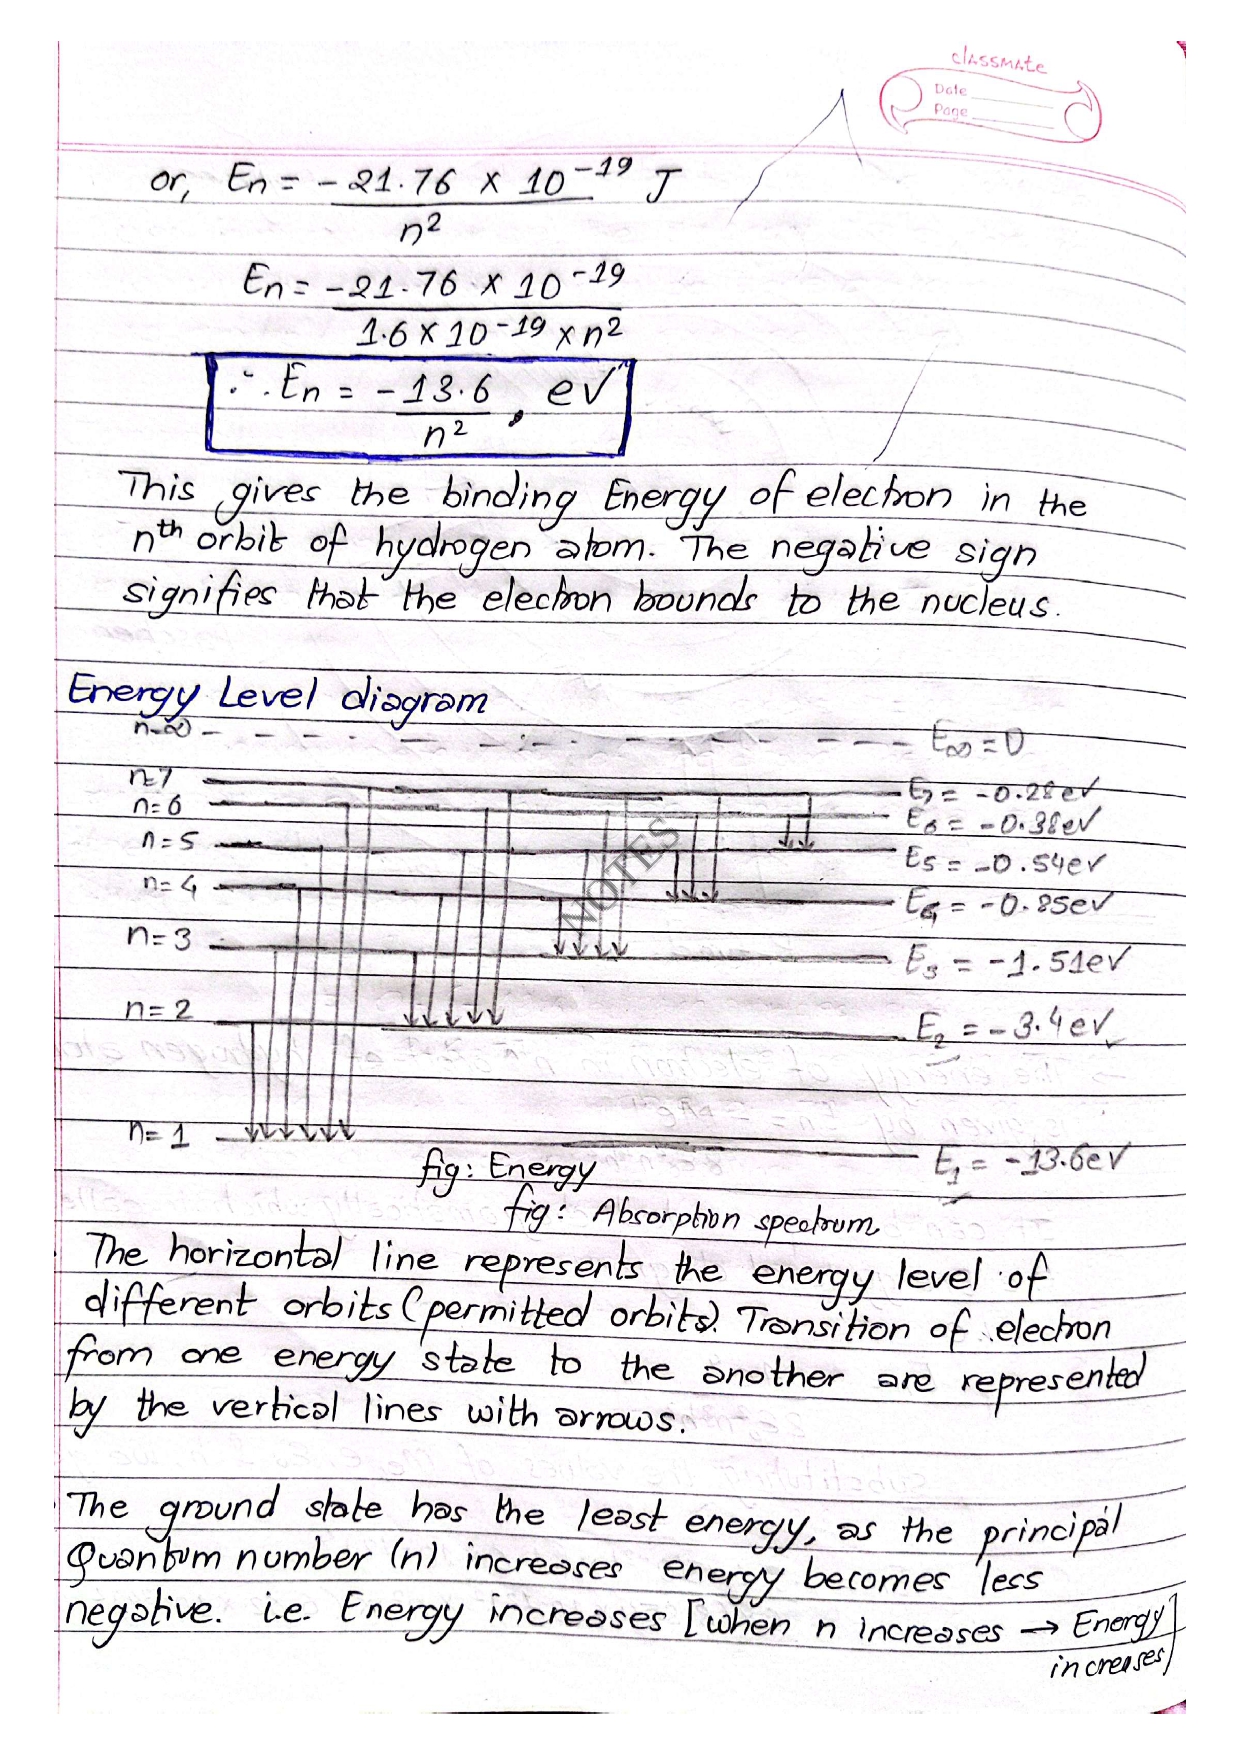 classmate
Date
Page
or, En = -21.76 x 10^-19 J
n²
En = -21.76 x 10^-19
1.6 x 10^-19 x n²
∴ En = -13.6 , eV
n²
This gives the binding Energy of electron in the
nth orbit of hydrogen atom. The negative sign
signifies that the electron bounds to the nucleus.
Energy Level diagram
n=∞ E∞ = 0
n=7 E7 = -0.28eV
n=6 E6 = -0.38eV
n=5 E5 = -0.54eV
n=4 E4 = -0.85eV
n=3 E3 = -1.51eV
n=2 E2 = -3.4eV
n=1 E1 = -13.6eV
NOTES
fig: Energy
fig: Absorption spectrum
The horizontal line represents the energy level of
different orbits (permitted orbits). Transition of electron
from one energy state to the another are represented
by the vertical lines with arrows.
The ground state has the least energy, as the principal
Quantum number (n) increases energy becomes less
negative. i.e. Energy increases [when n increases → Energy
increases]